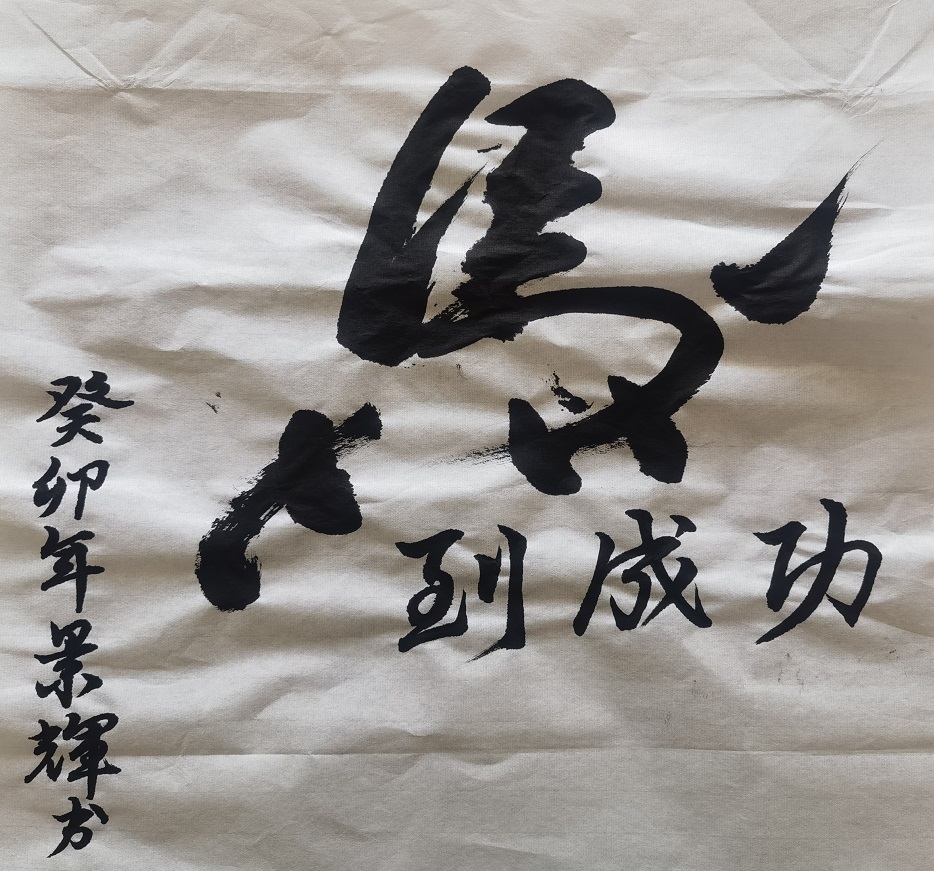 馬到成功
癸卯年景輝书